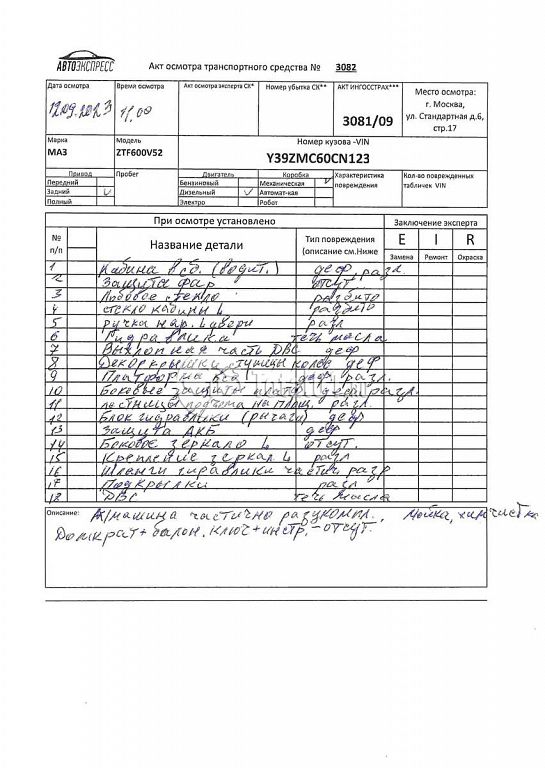 АВТОЭКСПРЕСС
Акт осмотра транспортного средства № 3082
Дата осмотра Время осмотра Акт осмотра эксперта СК* Номер убытка СК** АКТ ИНГОССТРАХ*** Место осмотра:
г. Москва,
ул. Стандартная д.6,
стр.17
12.09.2023 11,00 3081/09
Марка Модель Номер кузова -VIN
МАЗ ZTF600V52 Y39ZMC60CN123
Привод Пробег Двигатель Коробка Характеристика повреждения Кол-во поврежденных табличек VIN
Передний Бензиновый Механическая
Задний Дизельный Автомат-кая
Полный Электро Робот
При осмотре установлено Заключение эксперта
№ п/п Название детали Тип повреждения (описание см.Ниже E I R
Замена Ремонт Окраска
1 Кабина в сб. (водит.) деф, разл.
2 Защита фар отсут.
3 Лобовое стекло разбито
4 стекло кабины L разбито
5 ручка нар. L двери разл
6 Гидравлика течь масла
7 Выхлопная часть ДВС деф
8 Декор крышки ступицы колес деф
9 Платформа в сб деф. разл.
10 Боковые защиты платф деф. разл.
11 лестницы подъема на платф. разл.
12 Блок гидравлики (рычаги) деф
13 Защита АКБ деф
14 Боковое зеркало L отсут.
15 Крепление зеркал L разл
16 Шланги гидравлики частич разр
17 Подкрылки разл
18 ДВС течь масла
Описание: А/машина частично разукомпл., Мойка, химчистка
Домкрат + балон. ключ + инстр. - отсут.